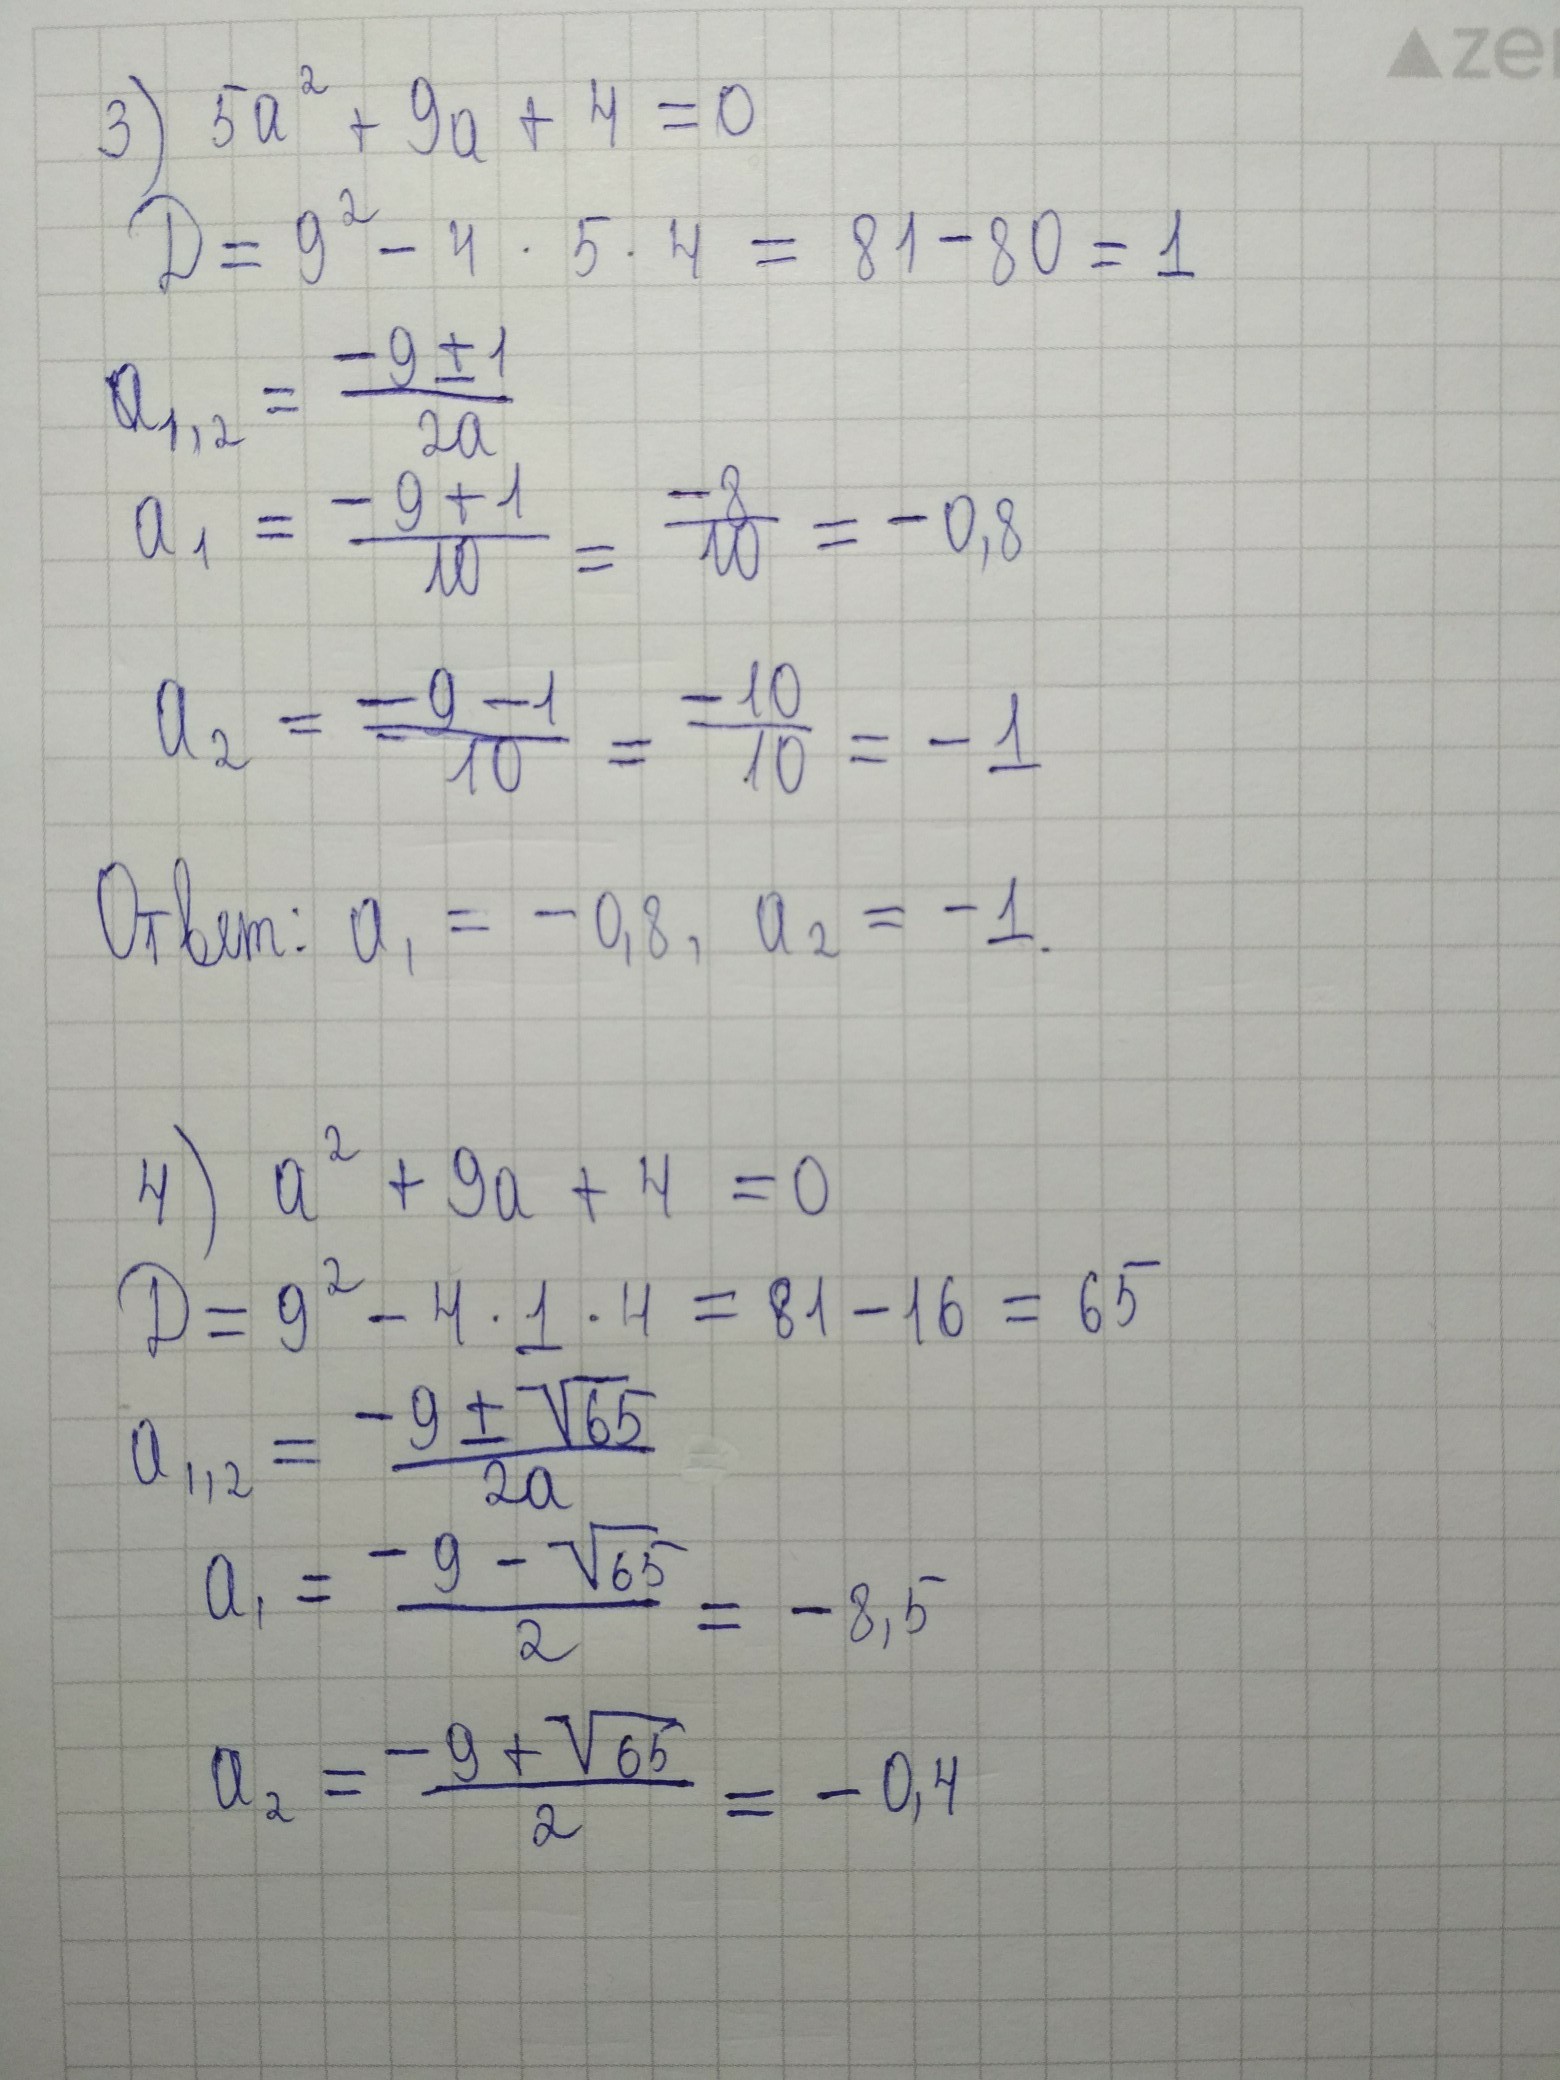 ▲zer
3) 5a² + 9a + 4 = 0
D = 9² - 4 · 5 · 4 = 81 - 80 = 1
a₁,₂ = (-9 ± 1)/(2a)
a₁ = (-9 + 1)/10 = -8/10 = -0,8
a₂ = (-9 - 1)/10 = -10/10 = -1
Ответ: a₁ = -0,8, a₂ = -1.
4) a² + 9a + 4 = 0
D = 9² - 4 · 1 · 4 = 81 - 16 = 65
a₁,₂ = (-9 ± √65)/(2a)
a₁ = (-9 - √65)/2 = -8,5
a₂ = (-9 + √65)/2 = -0,4